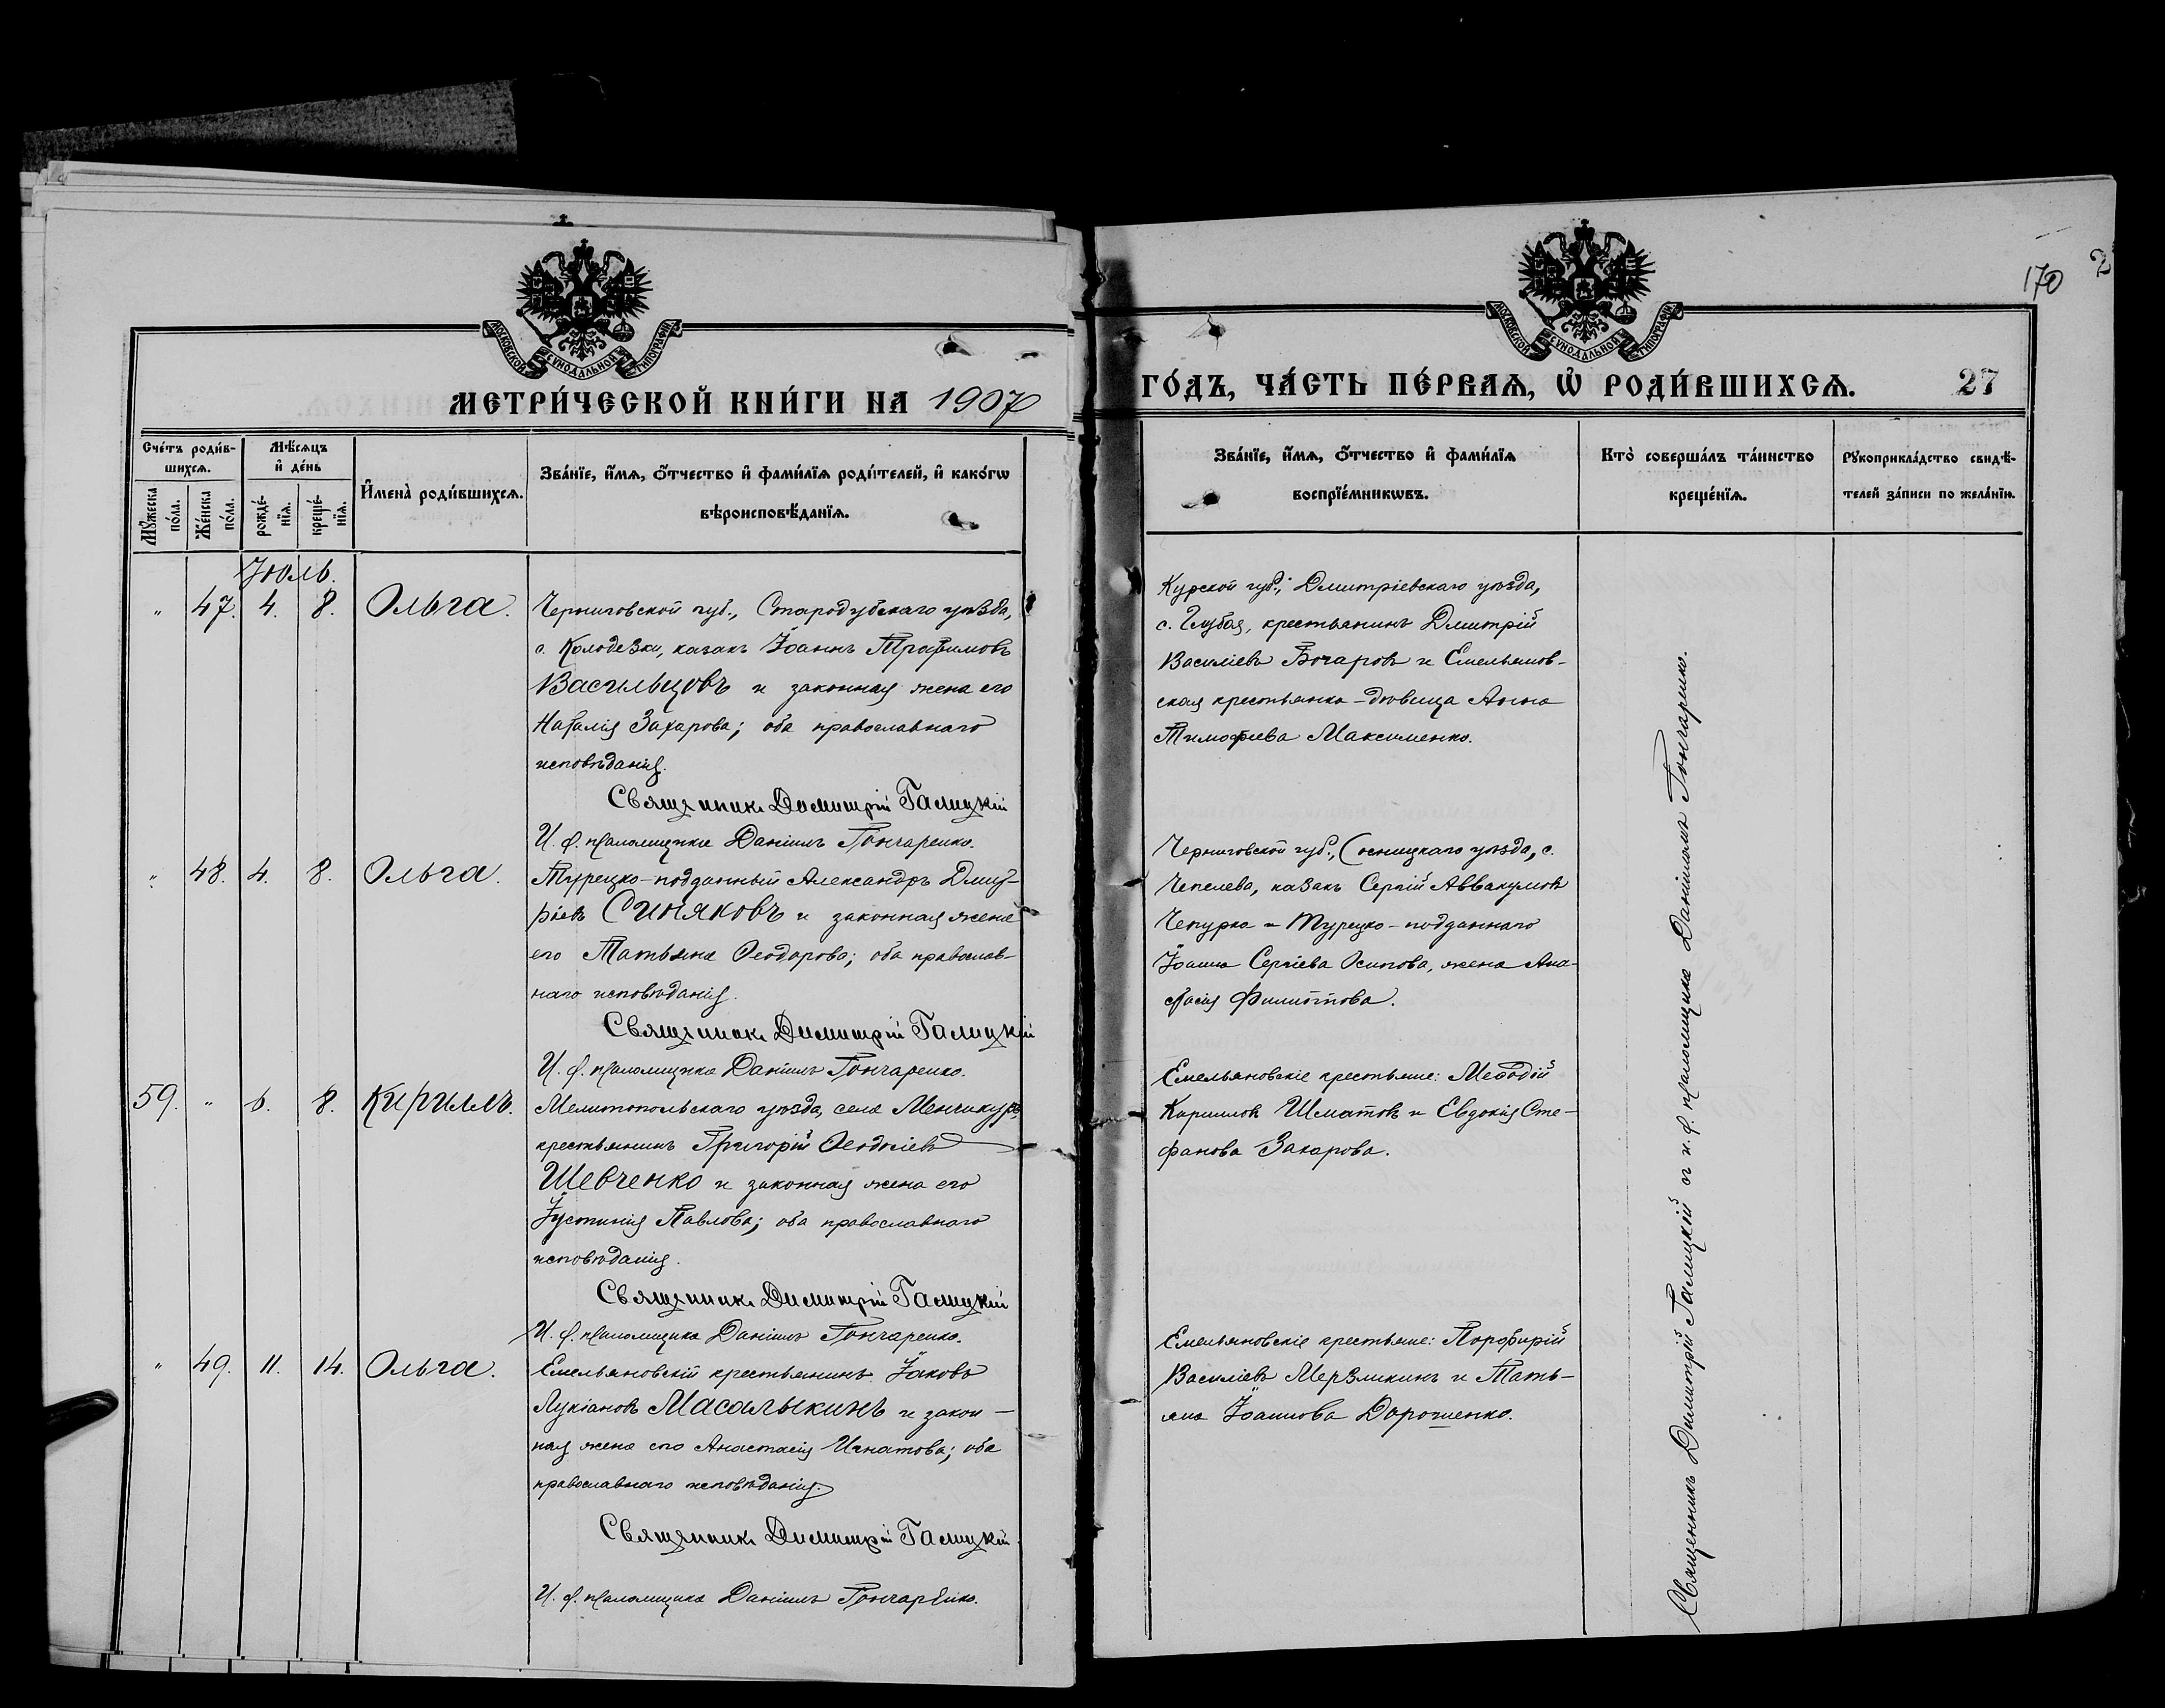 170
2
МОСКОВСКОЙ СѴНОДАЛЬНОЙ ТИПОГРАФІИ
МОСКОВСКОЙ СѴНОДАЛЬНОЙ ТИПОГРАФІИ
МЕТРИ́ЧЕСКОЙ КНИ́ГИ НА 1907
ГО́ДЪ, ЧА́СТЬ ПЕ́РВАѦ, Ѡ҆ РОДИ́ВШИХСѦ.
27
Сче́тъ роди́в-
шихсѧ.
Мꙋ́жеска по́ла.
Же́нска по́ла.
Мѣ́сѧцъ
и҆ де́нь
рожде́-
нїѧ.
креще́-
нїѧ.
И҆мена̀ роди́вшихсѧ.
Зва́нїе, и҆́мѧ, ѻ҆́тчество и҆ фами́лїѧ роди́телей, и҆ како́гѡ
вѣроисповѣ́данїѧ.
Зва́нїе, и҆́мѧ, ѻ҆́тчество и҆ фами́лїѧ
воспрїе́мникѡвъ.
Кто̀ соверша́лъ та́инство
креще́нїѧ.
Рꙋкоприкла́дство свидѣ́-
телей за́писи по жела́нїю.
Іюль.
" 47. 4. 8. Ольга.
Черниговской губ., Стародубскаго уѣзда,
с. Колодезки, казакъ Іоаннъ Трофимовъ
Васильцовъ и законная жена его
Наталія Захарова; оба православнаго
исповѣданія.
Священникъ Димитрій Галицкій
И. ф. псаломщика Даніилъ Гончаренко.
Курской губ., Дмитріевскаго уѣзда,
с. Глубая, крестьянинъ Дмитрій
Василіевъ Бочаровъ и Емельянов-
ская крестьянка-дѣвица Анна
Тимофеева Максименко.
" 48. 4. 8. Ольга.
Турецко-подданный Александръ Дмит-
ріевъ Синяковъ и законная жена
его Татьяна Ѳеодорова; оба православ-
наго исповѣданія.
Священникъ Димитрій Галицкій
И. ф. псаломщика Даніилъ Гончаренко.
Черниговской губ., Сосницкаго уѣзда, с.
Чепелева, казакъ Сергій Аввакумовъ
Чепурко и Турецко-подданнаго
Іоанна Сергіева Осипова, жена Ана-
стасія Филиппова.
59. " 6. 8. Кириллъ.
Мелитопольскаго уѣзда, села Менчикуръ,
крестьянинъ Григорій Ѳеодосіевъ
Шевченко и законная жена его
Іустинія Павлова; оба православнаго
исповѣданія.
Священникъ Димитрій Галицкій
И. ф. псаломщика Даніилъ Гончаренко.
Емельяновскіе крестьяне: Меѳодій
Кирилловъ Шматовъ и Евдокія Сте-
фанова Захарова.
" 49. 11. 14. Ольга.
Емельяновскій крестьянинъ Іаковъ
Лукіановъ Масалыкинъ и закон-
ная жена его Анастасія Игнатова; оба
православнаго исповѣданія.
Священникъ Димитрій Галицкій.
И. ф. псаломщика Даніилъ Гончаренко.
Емельяновскіе крестьяне: Порфирій
Василіевъ Мерзликинъ и Тать-
яна Іоаннова Дорошенко.
Священникъ Димитрій Галицкій съ и. ф. псаломщика Даніиломъ Гончаренко.